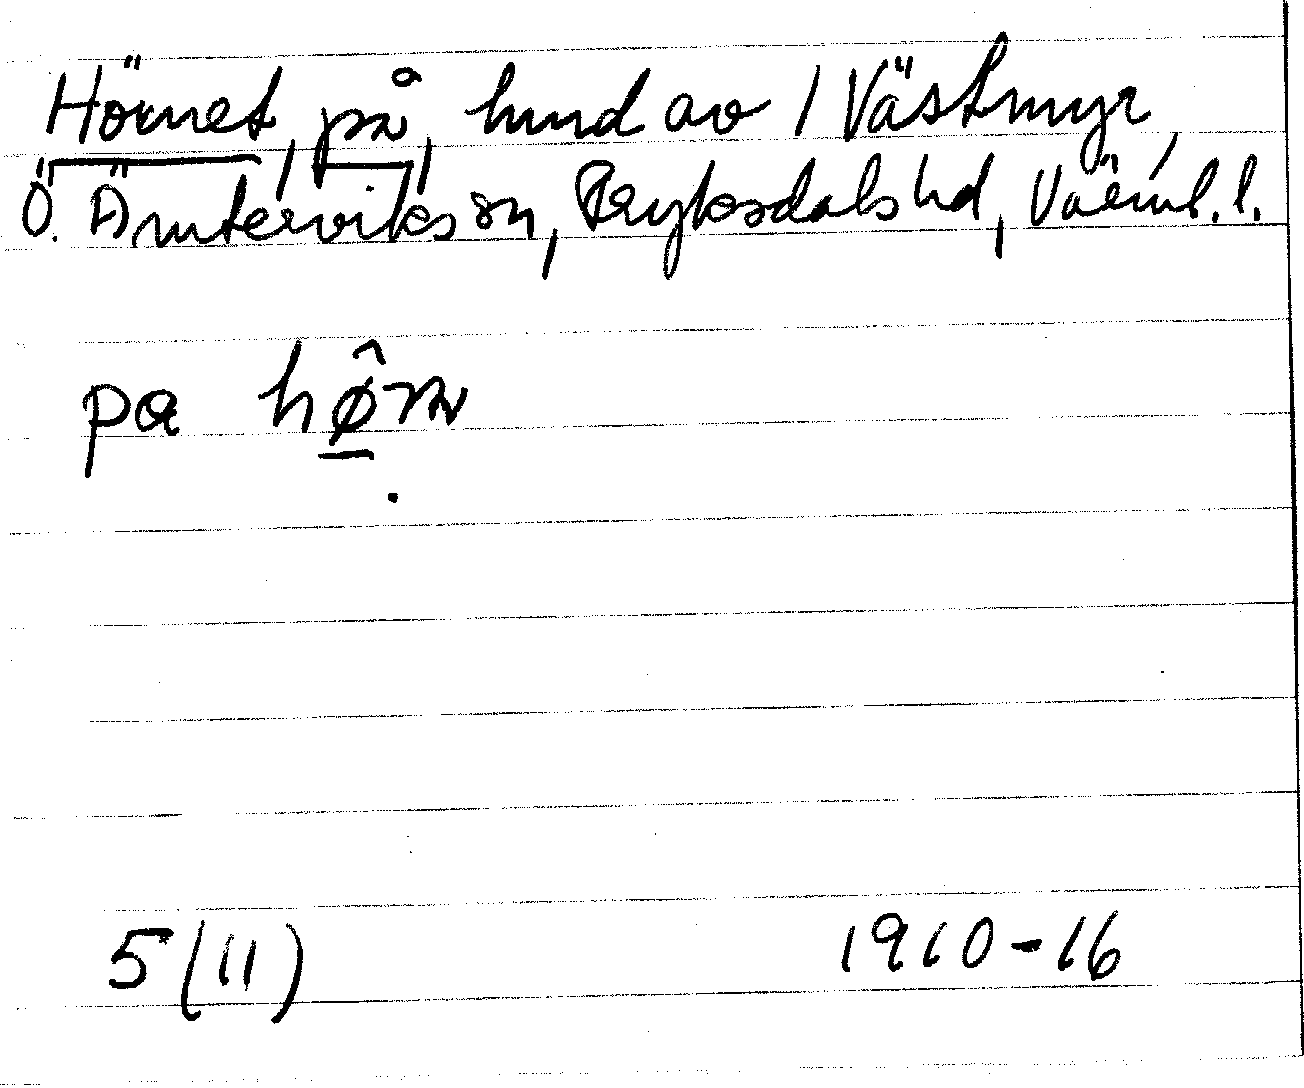 Hörnet, på, hmd av 1 Västmyr,
Ö. Ämterviks sn, Fryksdals hd, Värml. l.
pa
5 (11) 1910-16